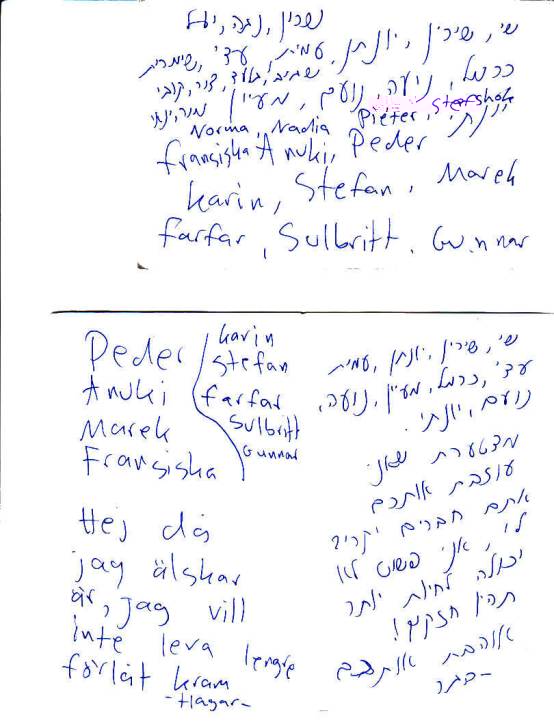 שרון, נגה, יעל
שי, שירין, יונתן, עמית, עדי, שימרית
גלעד, צור, קובי
כרמל, נועה, נועם, מעיין
יונתי Pieter,
Norma, Nadia
Fransiska Anuki, Peder
karin, Stefan, Marek
farfar, Sulbritt, Gunnar
Peder
Anuki
Marek
Fransiska
karin
Stefan
farfar
Sulbritt
Gunnar
שי, שירין, יונתן, עמית
עדי, כרמל, מעיין, נועה,
נועם, יונתי.
מצטערת שאני
עוזבת אתכם
אתם חברים
לי, אני פשוט לא
יכולה לחיות יותר
תהיו חזקים!
אוהבת אתכם
-הגר
Hej då
jag älskar
är, jag vill
inte leva lengre
förlåt kram
-Hagar-